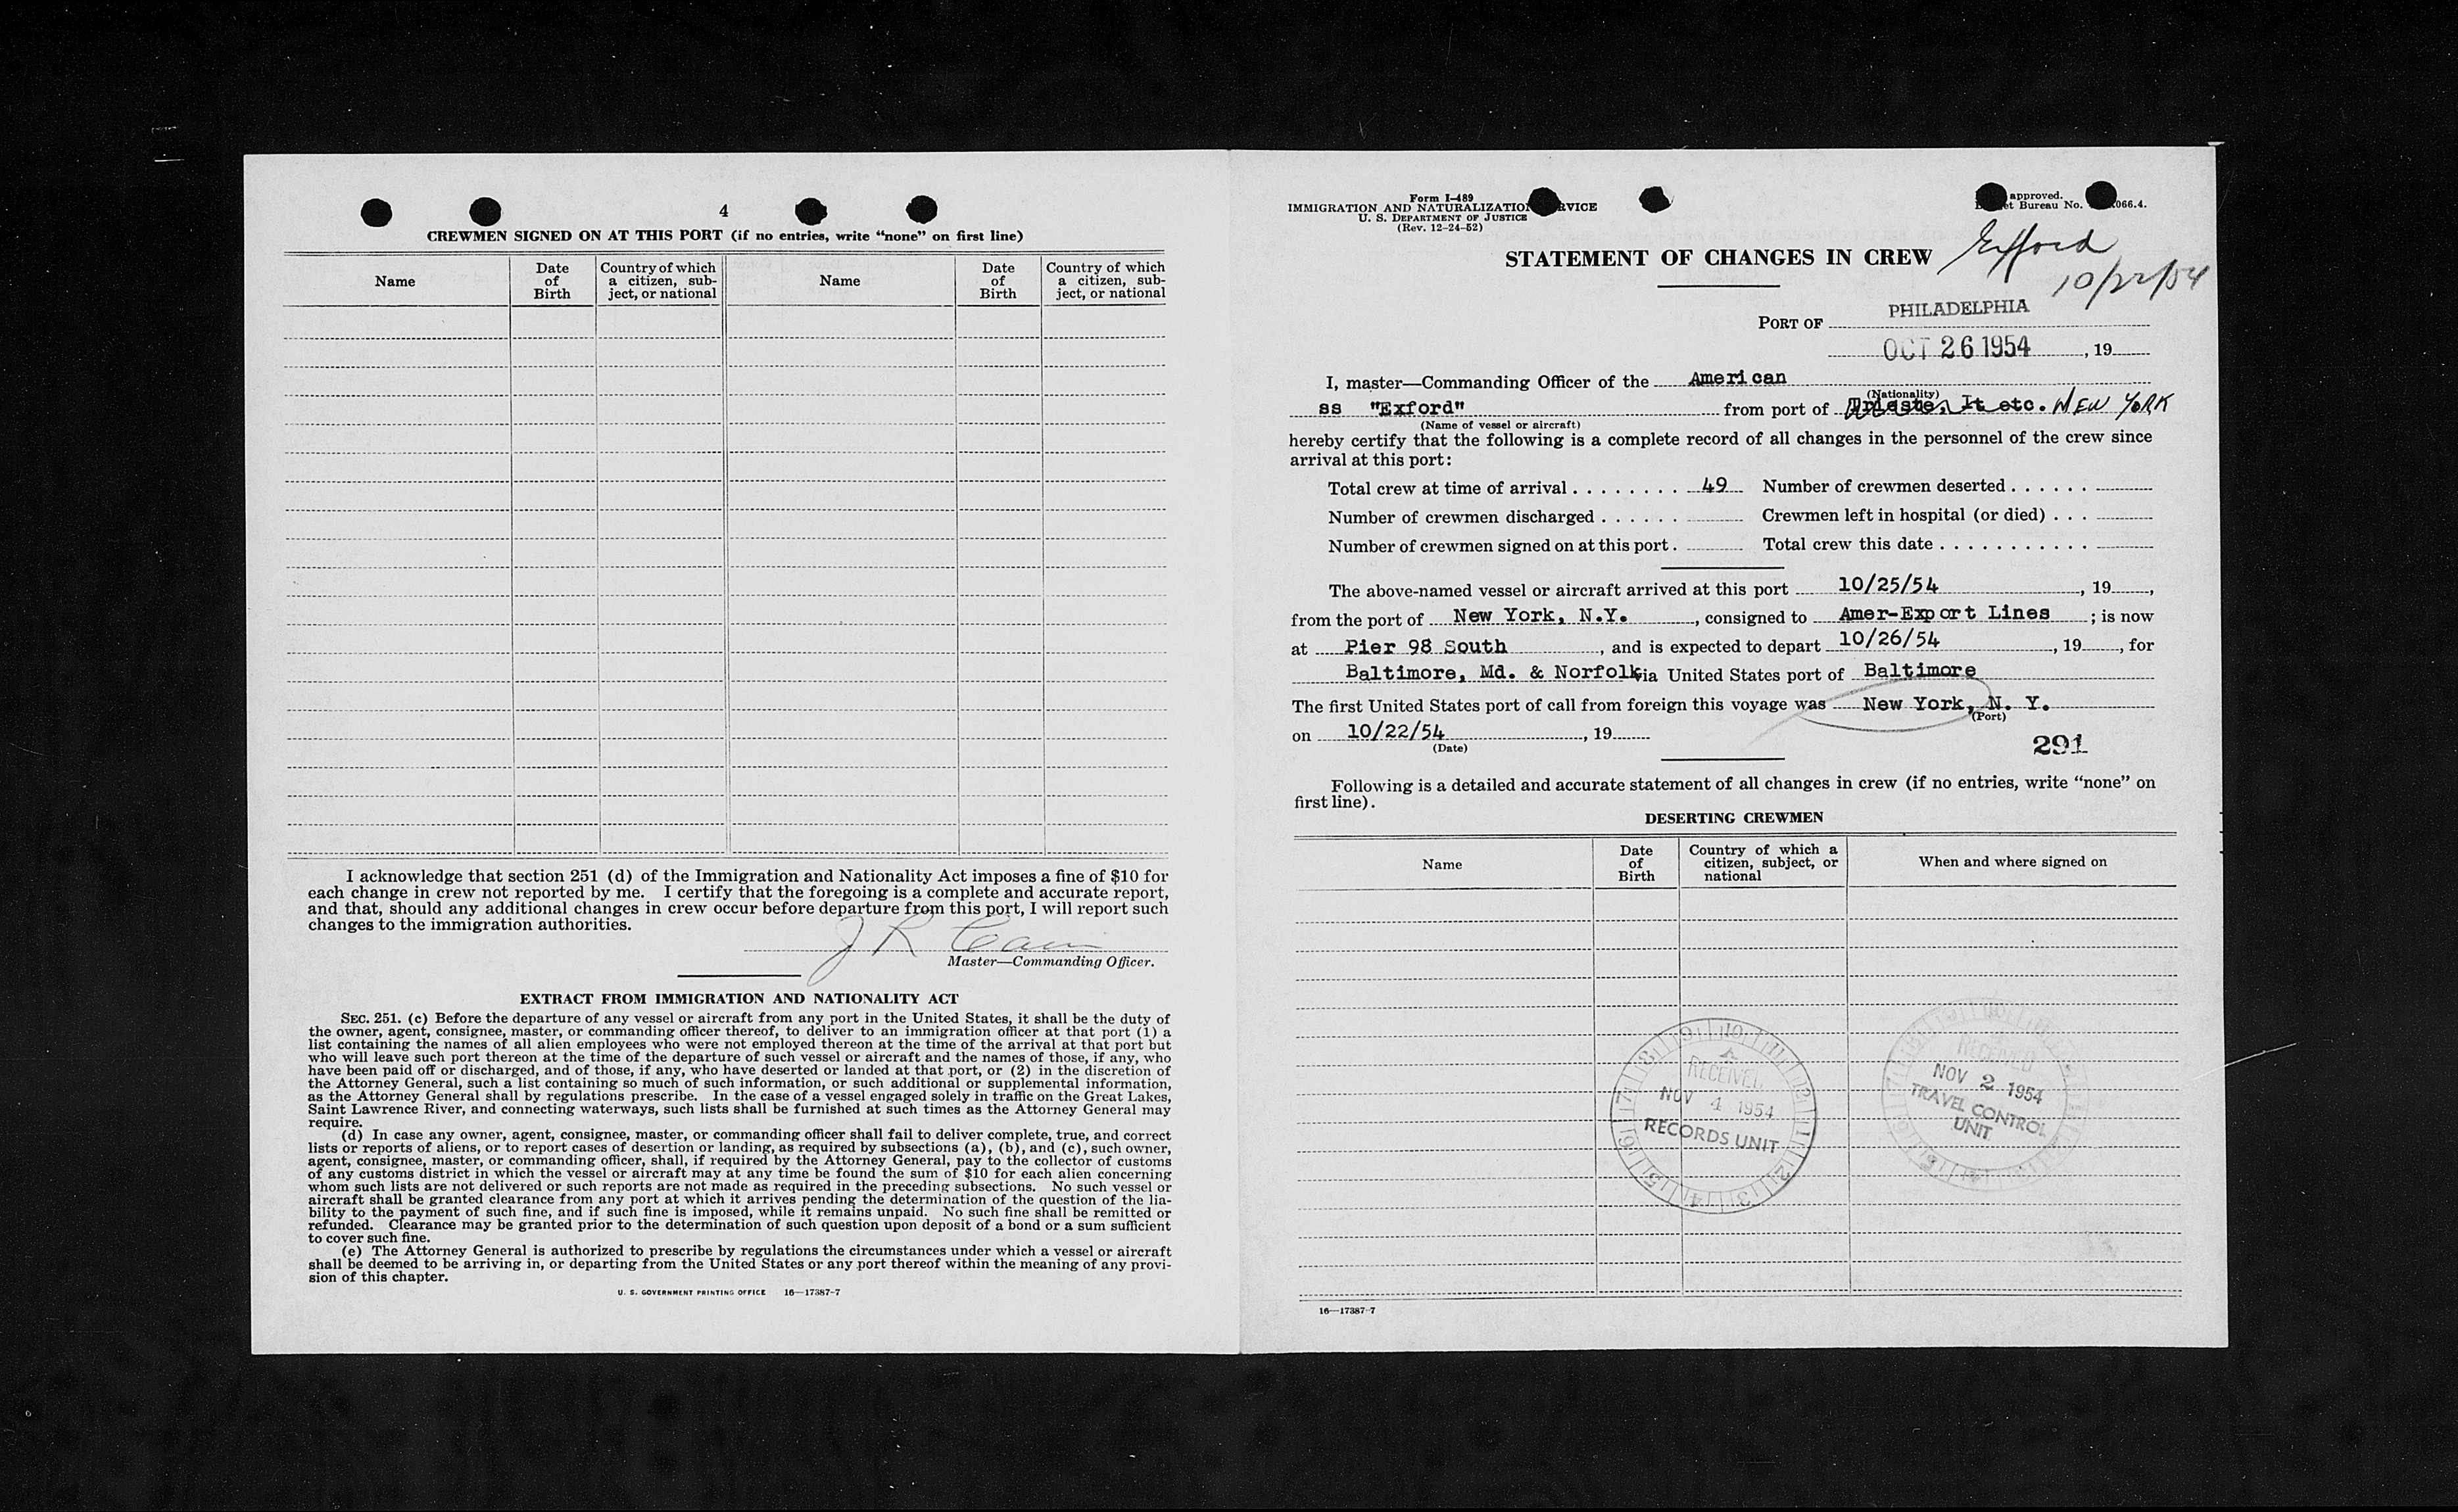 4
CREWMEN SIGNED ON AT THIS PORT (if no entries, write “none” on first line)
Name
Date of Birth
Country of which a citizen, sub-ject, or national
Name
Date of Birth
Country of which a citizen, sub-ject, or national
I acknowledge that section 251 (d) of the Immigration and Nationality Act imposes a fine of $10 for
each change in crew not reported by me. I certify that the foregoing is a complete and accurate report,
and that, should any additional changes in crew occur before departure from this port, I will report such
changes to the immigration authorities.
J R Cain
Master—Commanding Officer.
EXTRACT FROM IMMIGRATION AND NATIONALITY ACT
SEC. 251. (c) Before the departure of any vessel or aircraft from any port in the United States, it shall be the duty of
the owner, agent, consignee, master, or commanding officer thereof, to deliver to an immigration officer at that port (1) a
list containing the names of all alien employees who were not employed thereon at the time of the arrival at that port but
who will leave such port thereon at the time of the departure of such vessel or aircraft and the names of those, if any, who
have been paid off or discharged, and of those, if any, who have deserted or landed at that port, or (2) in the discretion of
the Attorney General, such a list containing so much of such information, or such additional or supplemental information,
as the Attorney General shall by regulations prescribe. In the case of a vessel engaged solely in traffic on the Great Lakes,
Saint Lawrence River, and connecting waterways, such lists shall be furnished at such times as the Attorney General may
require.
(d) In case any owner, agent, consignee, master, or commanding officer shall fail to deliver complete, true, and correct
lists or reports of aliens, or to report cases of desertion or landing, as required by subsections (a), (b), and (c), such owner,
agent, consignee, master, or commanding officer, shall, if required by the Attorney General, pay to the collector of customs
of any customs district in which the vessel or aircraft may at any time be found the sum of $10 for each alien concerning
whom such lists are not delivered or such reports are not made as required in the preceding subsections. No such vessel or
aircraft shall be granted clearance from any port at which it arrives pending the determination of the question of the lia-
bility to the payment of such fine, and if such fine is imposed, while it remains unpaid. No such fine shall be remitted or
refunded. Clearance may be granted prior to the determination of such question upon deposit of a bond or a sum sufficient
to cover such fine.
(e) The Attorney General is authorized to prescribe by regulations the circumstances under which a vessel or aircraft
shall be deemed to be arriving in, or departing from the United States or any port thereof within the meaning of any provi-
sion of this chapter.
U. S. GOVERNMENT PRINTING OFFICE 16—17387-7
Form I-489
IMMIGRATION AND NATURALIZATION SERVICE
U. S. DEPARTMENT OF JUSTICE
(Rev. 12-24-52)
approved.
Bureau No. 066.4.
STATEMENT OF CHANGES IN CREW
Exford
10/22/54
PORT OF PHILADELPHIA
OCT 26 1954, 19
I, master—Commanding Officer of the American
(Nationality)
ss "Exford" from port of Trieste, It etc. NEW YORK
(Name of vessel or aircraft)
hereby certify that the following is a complete record of all changes in the personnel of the crew since
arrival at this port:
Total crew at time of arrival 49 Number of crewmen deserted
Number of crewmen discharged Crewmen left in hospital (or died)
Number of crewmen signed on at this port. Total crew this date
The above-named vessel or aircraft arrived at this port 10/25/54, 19,
from the port of New York, N.Y., consigned to Amer-Export Lines; is now
at Pier 98 South, and is expected to depart 10/26/54, 19, for
Baltimore, Md. & Norfolk via United States port of Baltimore
The first United States port of call from foreign this voyage was New York, N. Y.
(Port)
on 10/22/54, 19
(Date)
291
Following is a detailed and accurate statement of all changes in crew (if no entries, write “none” on
first line).
DESERTING CREWMEN
Name
Date of Birth
Country of which a citizen, subject, or national
When and where signed on
RECEIVED
NOV 4 1954
RECORDS UNIT
RECEIVED
NOV 2 1954
TRAVEL CONTROL
UNIT
16—17387-7